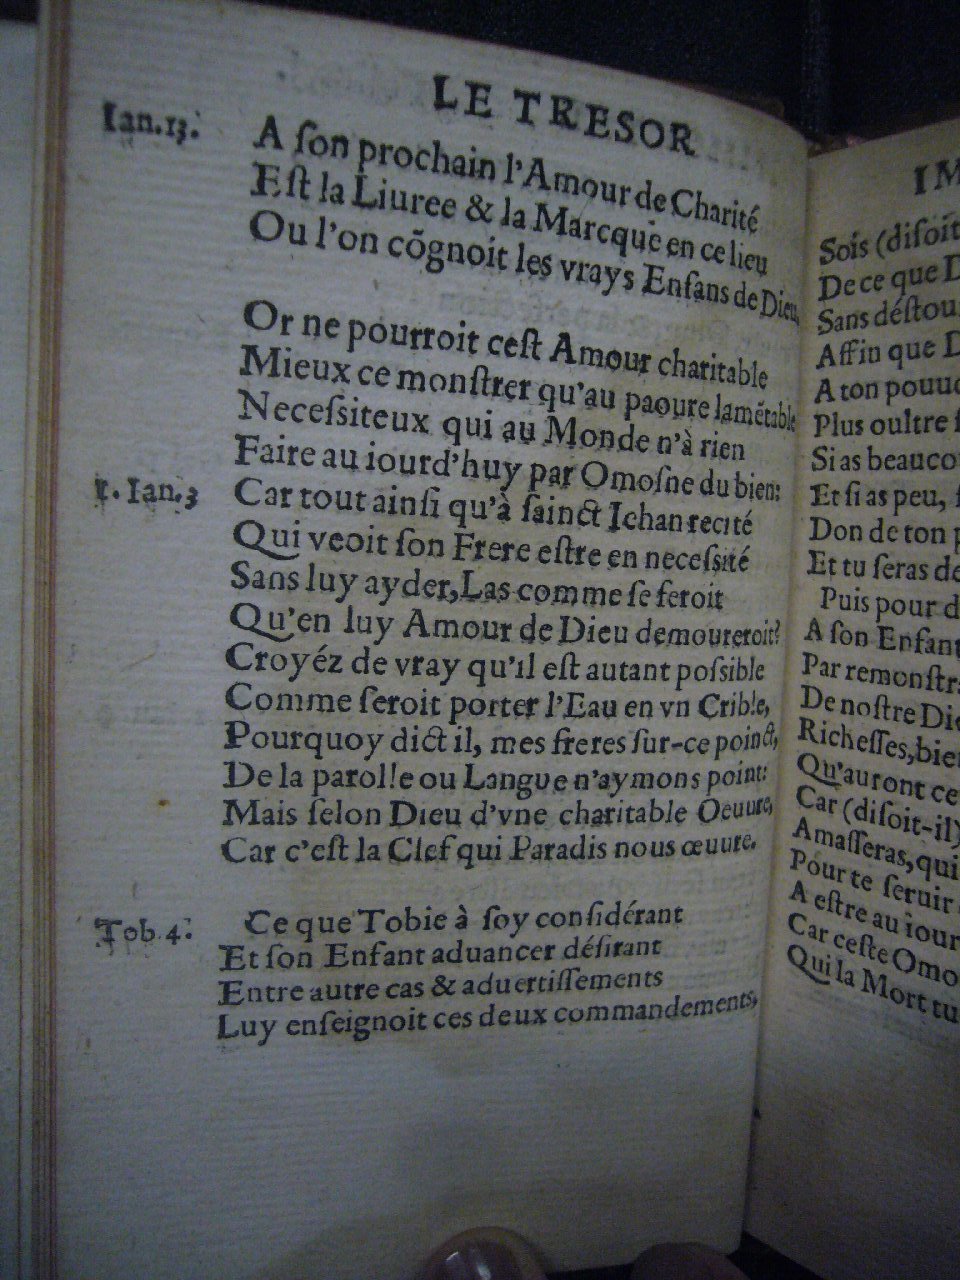 LE TRESOR
Ian.13.
A ſon prochain l'Amour de Charité
Eſt la Liuree & la Marcque en ce lieu
Ou l'on cõgnoit les vrays Enfans de Dieu,
Or ne pourroit ceſt Amour charitable
Mieux ce monſtrer qu'au paoure lamẽtable
Neceſsiteux qui au Monde n'à rien
Faire au iourd'huy par Omoſne du bien:
1. Ian.3
Car tout ainſi qu'à ſainct Iehan recité
Qui veoit ſon Frere eſtre en neceſsité
Sans luy ayder, Las comme ſe feroit
Qu'en luy Amour de Dieu demoureroit?
Croyéz de vray qu'il eſt autant poſsible
Comme ſeroit porter l'Eau en vn Crible,
Pourquoy dict il, mes freres ſur-ce poinct,
De la parolle ou Langue n'aymons point:
Mais ſelon Dieu d'vne charitable Oeuure,
Car c'eſt la Clef qui Paradis nous œuure.
Tob.4.
Ce que Tobie à ſoy conſidérant
Et ſon Enfant aduancer déſirant
Entre autre cas & aduertiſſements
Luy enſeignoit ces deux commandements,
IM
Sois (diſoit
De ce que D
Sans déſtou
Affin que D
A ton pouuo
Plus oultre
Si as beauco
Et ſi as peu,
Don de ton
Et tu ſeras de
Puis pour d
A ſon Enfant
Par remonſtr
De noſtre Die
Richeſſes, bie
Qu'auront ce
Car (diſoit-il)
Amaſſeras, qui
Pour te ſeruir
A eſtre au iour
Car ceſte Omo
Qui la Mort tu